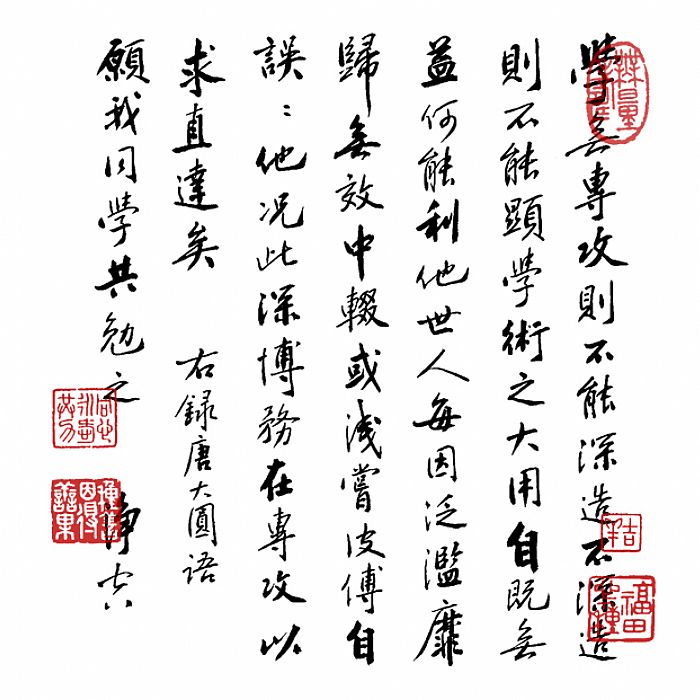 學無專攻則不能深造不深造
則不能顯學術之大用自既無
益何能利他世人每因泛濫靡
歸無效中輟或淺嘗皮傅自
誤〻他況此深博務在專攻以
求直達矣 右録唐大圓語
願我同學共勉之 淨空
福田
種善因得善果